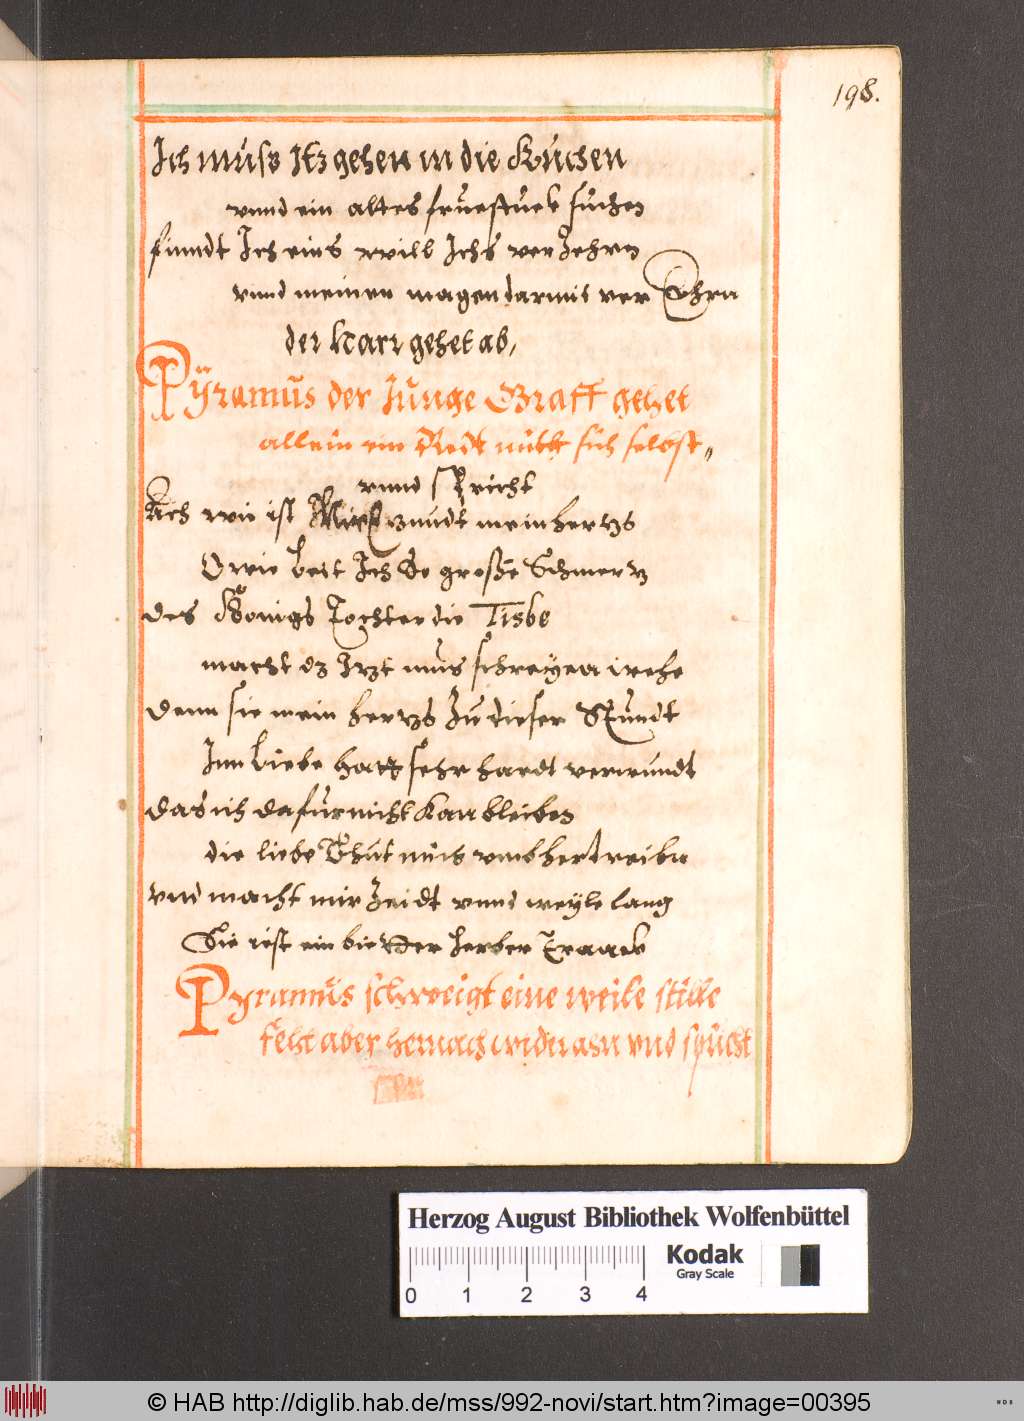 198.
Ich mus Itz gehen in die Kuchen
vnnd ein altes fruestuck suchen
finndt Ich eins will Ichs verzehrn
vnnd meinen magen darmit ver Ehrn
der Narr gehet ab,
Pÿramus der Junge Graff gehet
allein ein Redt mitt sich selbst
vnnd spricht
Ach wie ist verwundt mein hertz
O wie leit Ich so große Schmertz
des Konigs Tochter die Tisbe
macht dz Itzt mus schreyen wehe
denn sie mein hertz zu dieser Stundt
Inn Liebe hatt sehr hardt verwundt
das ich dafur nicht kan bleiben
die liebe Thut mich vmbher treibn
vnd macht mir Zeidt vnnd weyle lang
Sie ist ein bitter herber Tranck
Pyramus schweigt eine weile stille
feht aber hernach widder an vnd spricht
Herzog August Bibliothek Wolfenbüttel
Kodak
Gray Scale
0 1 2 3 4
© HAB http://diglib.hab.de/mss/992-novi/start.htm?image=00395